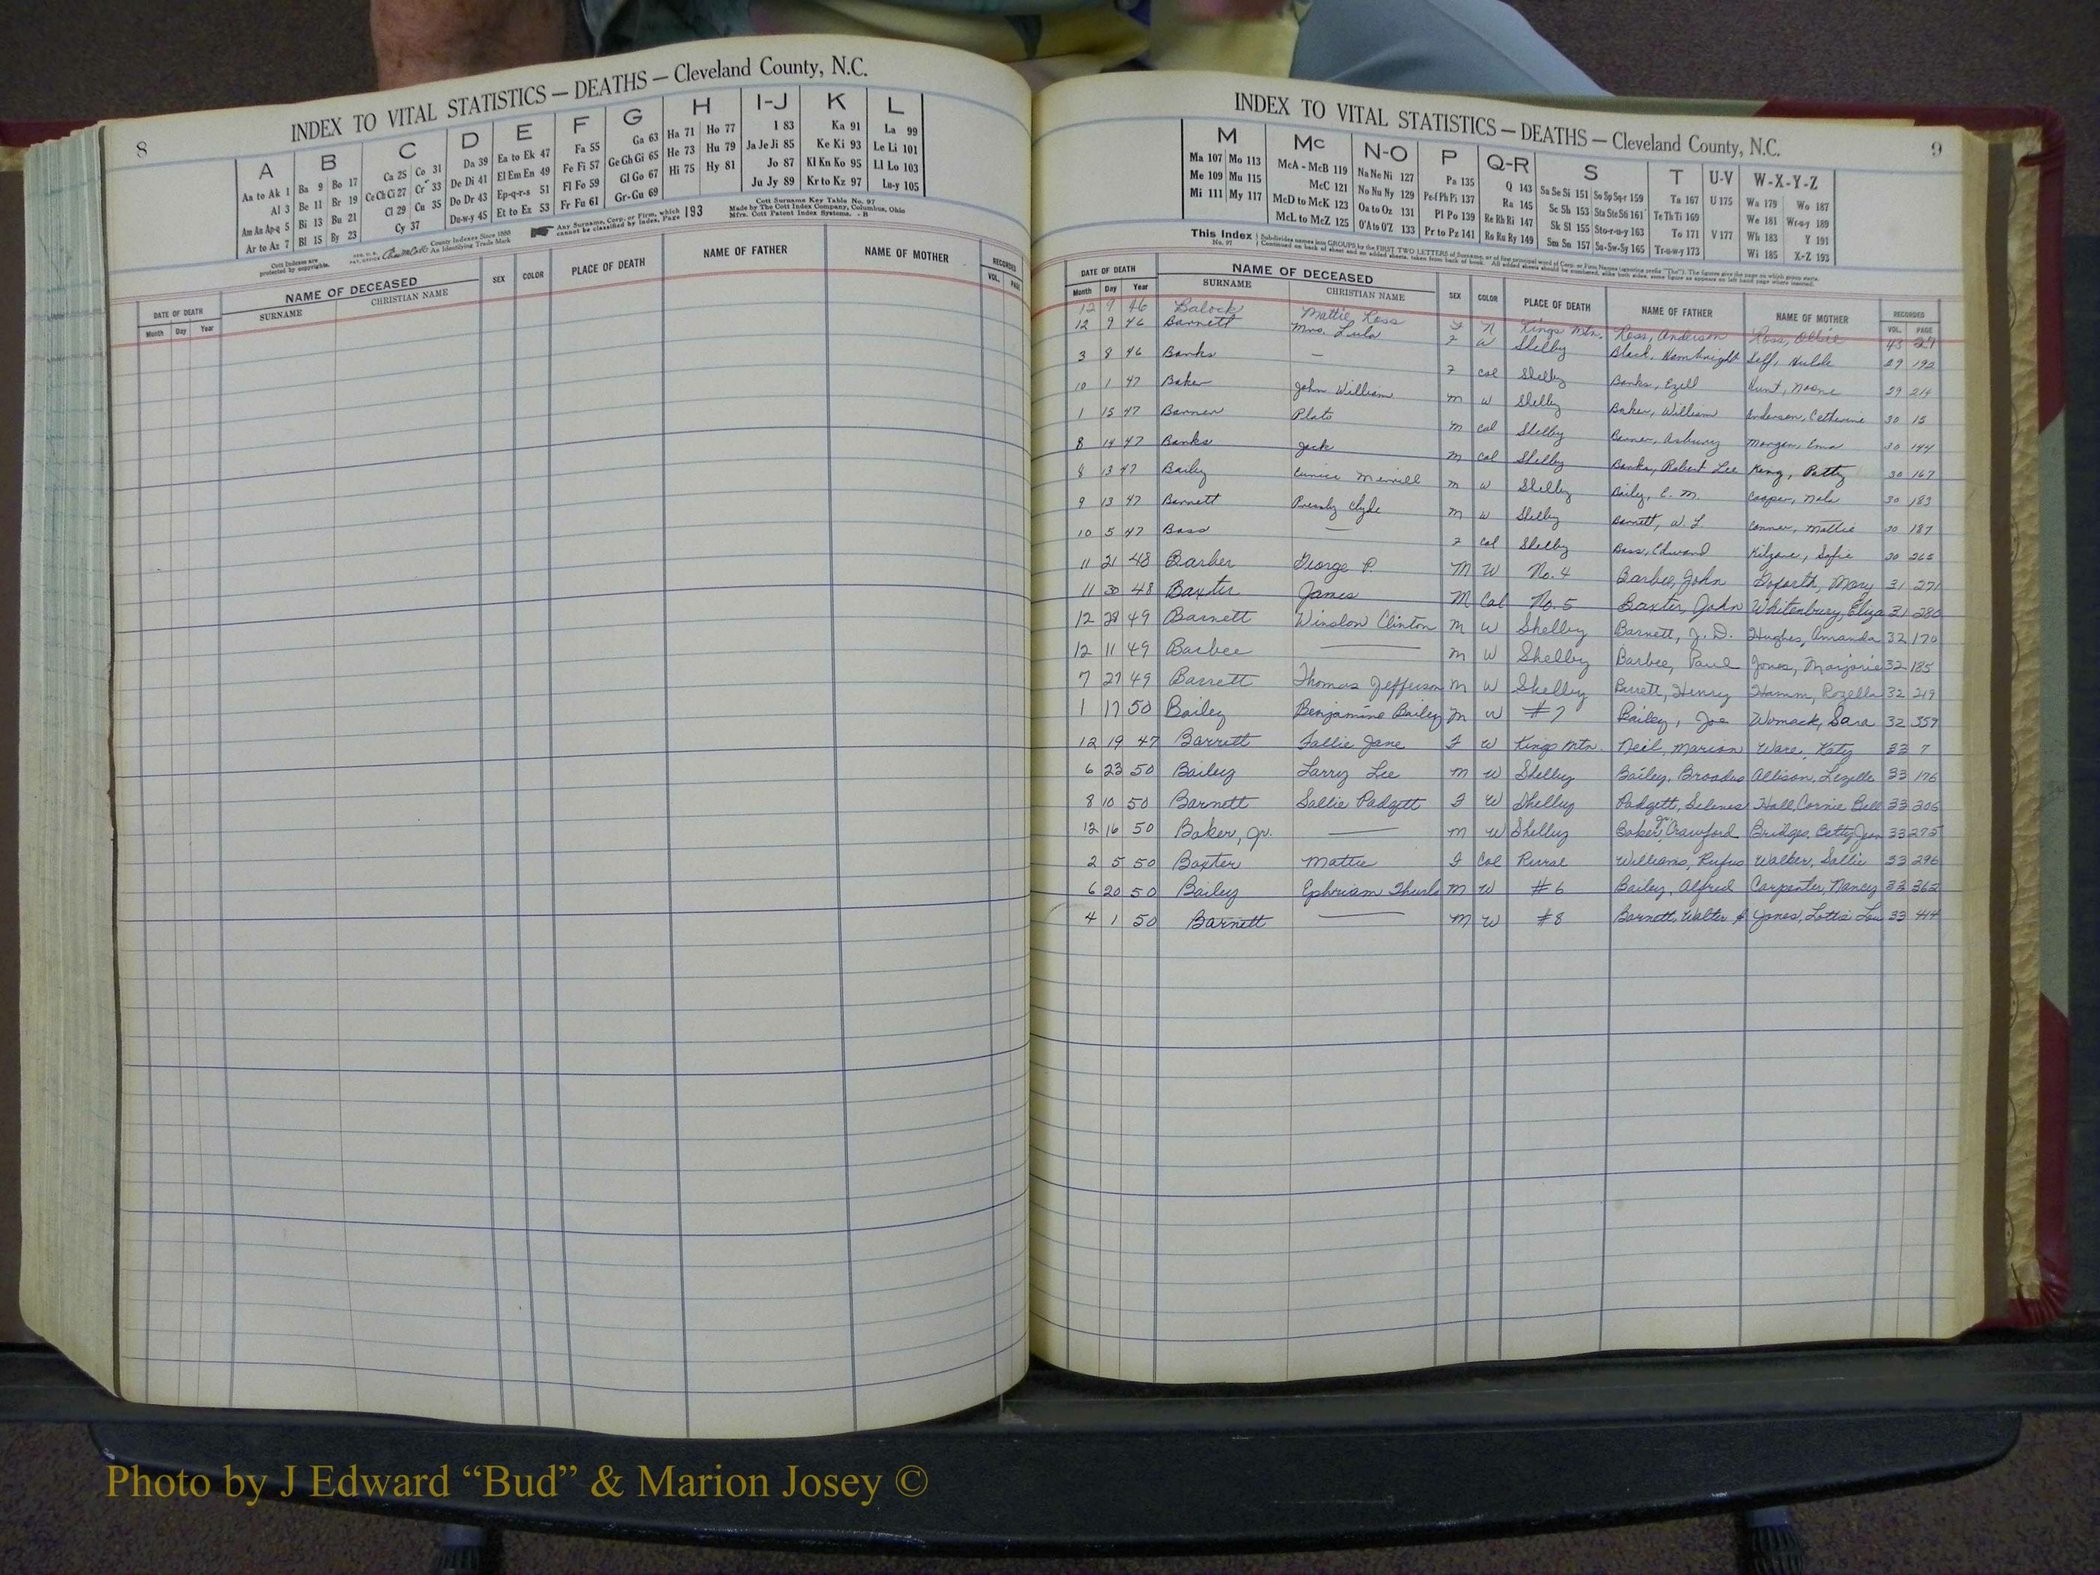 8
INDEX TO VITAL STATISTICS — DEATHS — Cleveland County, N.C.
A B C D E F G H I-J K L
Aa to Ak 1 Ba 9 Bo 17 Ca 25 Co 31 Da 39 Ea to Ek 47 Fa 55 Ga 63 Ha 71 Ho 77 I 83 Ka 91 La 99
Al 3 Be 11 Br 19 Ce Ch Ci 27 Cr 33 De Di 41 El Em En 49 Fe Fi 57 Ge Gh Gi 65 He 73 Hu 79 Ja Je Ji 85 Ke Ki 93 Le Li 101
Am An Ap-q 5 Bi 13 Bu 21 Cl 29 Cu 35 Do Dr 43 Ep-q-r-s 51 Fl Fo 59 Gl Go 67 Hi 75 Hy 81 Jo 87 Kl Kn Ko 95 Ll Lo 103
Ar to Az 7 Bl 15 By 23 Cy 37 Du-w-y 45 Et to Ez 53 Fr Fu 61 Gr-Gu 69 Ju Jy 89 Kr to Kz 97 Lu-y 105
Cott Indexes are protected by copyrights.
County Indexes Since 1888
An Identifying Trade Mark
Any Surname, Corp. or Firm, which cannot be classified by Index, Page 193
Cott Surname Key Table No. 97
Made by The Cott Index Company, Columbus, Ohio
Mfrs. Cott Patent Index Systems. - B
DATE OF DEATH NAME OF DECEASED SEX COLOR PLACE OF DEATH NAME OF FATHER NAME OF MOTHER RECORDED
Month Day Year SURNAME CHRISTIAN NAME VOL. PAGE
INDEX TO VITAL STATISTICS — DEATHS — Cleveland County, N.C.
9
M Mc N-O P Q-R S T U-V W-X-Y-Z
Ma 107 Mo 113 McA - McB 119 Na Ne Ni 127 Pa 135 Q 143 Sa Se Si 151 So Sp Sq-r 159 Ta 167 U 175 Wa 179 Wo 187
Me 109 Mu 115 McC 121 No Nu Ny 129 Pe-f Ph Pi 137 Ra 145 Sc Sh 153 Sta Ste Sti 161 Te Th Ti 169 We 181 Wr-u-y 189
Mi 111 My 117 McD to McK 123 Oa to Oz 131 Pl Po 139 Re Rh Ri 147 Sk Sl 155 Sto-r-u-y 163 To 171 V 177 Wh 183 Y 191
McL to McZ 125 O'A to O'Z 133 Pr to Pz 141 Ro Ru Ry 149 Sm Sn 157 Su-Sw-Sy 165 Tr-u-w-y 173 Wi 185 X-Z 193
This Index No. 97 Subdivides names into GROUPS by the FIRST TWO LETTERS of Surname, or of first principal word of Corp. or Firm Names (ignoring prefix "The"). The figures give the page on which group starts.
DATE OF DEATH NAME OF DECEASED SEX COLOR PLACE OF DEATH NAME OF FATHER NAME OF MOTHER RECORDED
Month Day Year SURNAME CHRISTIAN NAME VOL. PAGE
12 9 46 Balock Mattie Ross F N Kings Mtn. Ross, Anderson Ross, Ollie 43 27
12 9 46 Barnett Mrs. Lula F W Shelby Black, Self, 29 192
3 8 46 Banks — F Col Shelby Banks, Ezell Hunt, 29 214
10 1 47 Baker John William M W Shelby Baker, William Anderson, Catherine 30 15
1 15 47 Barner Plato M Col Shelby Barner, Asbury Morgan, Emma 30 144
8 14 47 Banks Jack M Col Shelby Banks, Robert Lee King, Patty 30 167
8 13 47 Baily Eunice Merrill M W Shelby Baily, C. M. Cooper, Nola 30 183
9 13 47 Barnett Clyde M W Shelby Barnett, W. L. Conner, Mattie 30 187
10 5 47 Bass — F Col Shelby Bass, Edward Kilgore, Sofie 30 265
11 21 48 Barber George P. M W No. 4 Barbee, John Goforth, Mary 31 271
11 30 48 Baxter James M Col No. 5 Baxter, John Whitenbury, Eliza 31 280
12 28 49 Barnett Winslow Clinton M W Shelby Barnett, J. D. Hughes, Amanda 32 170
12 11 49 Barbee — M W Shelby Barbee, Paul Jones, Marjorie 32 185
7 27 49 Barrett Thomas Jefferson M W Shelby Barrett, Henry Hamm, Rozella 32 219
1 17 50 Bailey Benjamine Bailey M W #7 Bailey, Joe Womack, Sara 32 357
12 19 47 Barrett Sallie Jane F W Kings Mtn. Neil, Marion Ware, Katy 33 7
6 23 50 Bailey Larry Lee M W Shelby Bailey, Broadus Allison, Lezelle 33 176
8 10 50 Barnett Sallie Padgett F W Shelby Padgett, Selenes Hall, Cornie Bell 33 206
12 16 50 Baker, Jr. — M W Shelby Baker, Jr. Crawford Bridges, Betty Jean 33 275
2 5 50 Baxter Mattie F Col Rural Williams, Rufus Walker, Sallie 33 296
6 20 50 Bailey Ephriam M W #6 Bailey, Alfred Carpenter, Nancy 33 362
4 1 50 Barnett — M W #8 Barnett, Walter Jones, Lottie Lou 33 444
Photo by J Edward “Bud” & Marion Josey ©